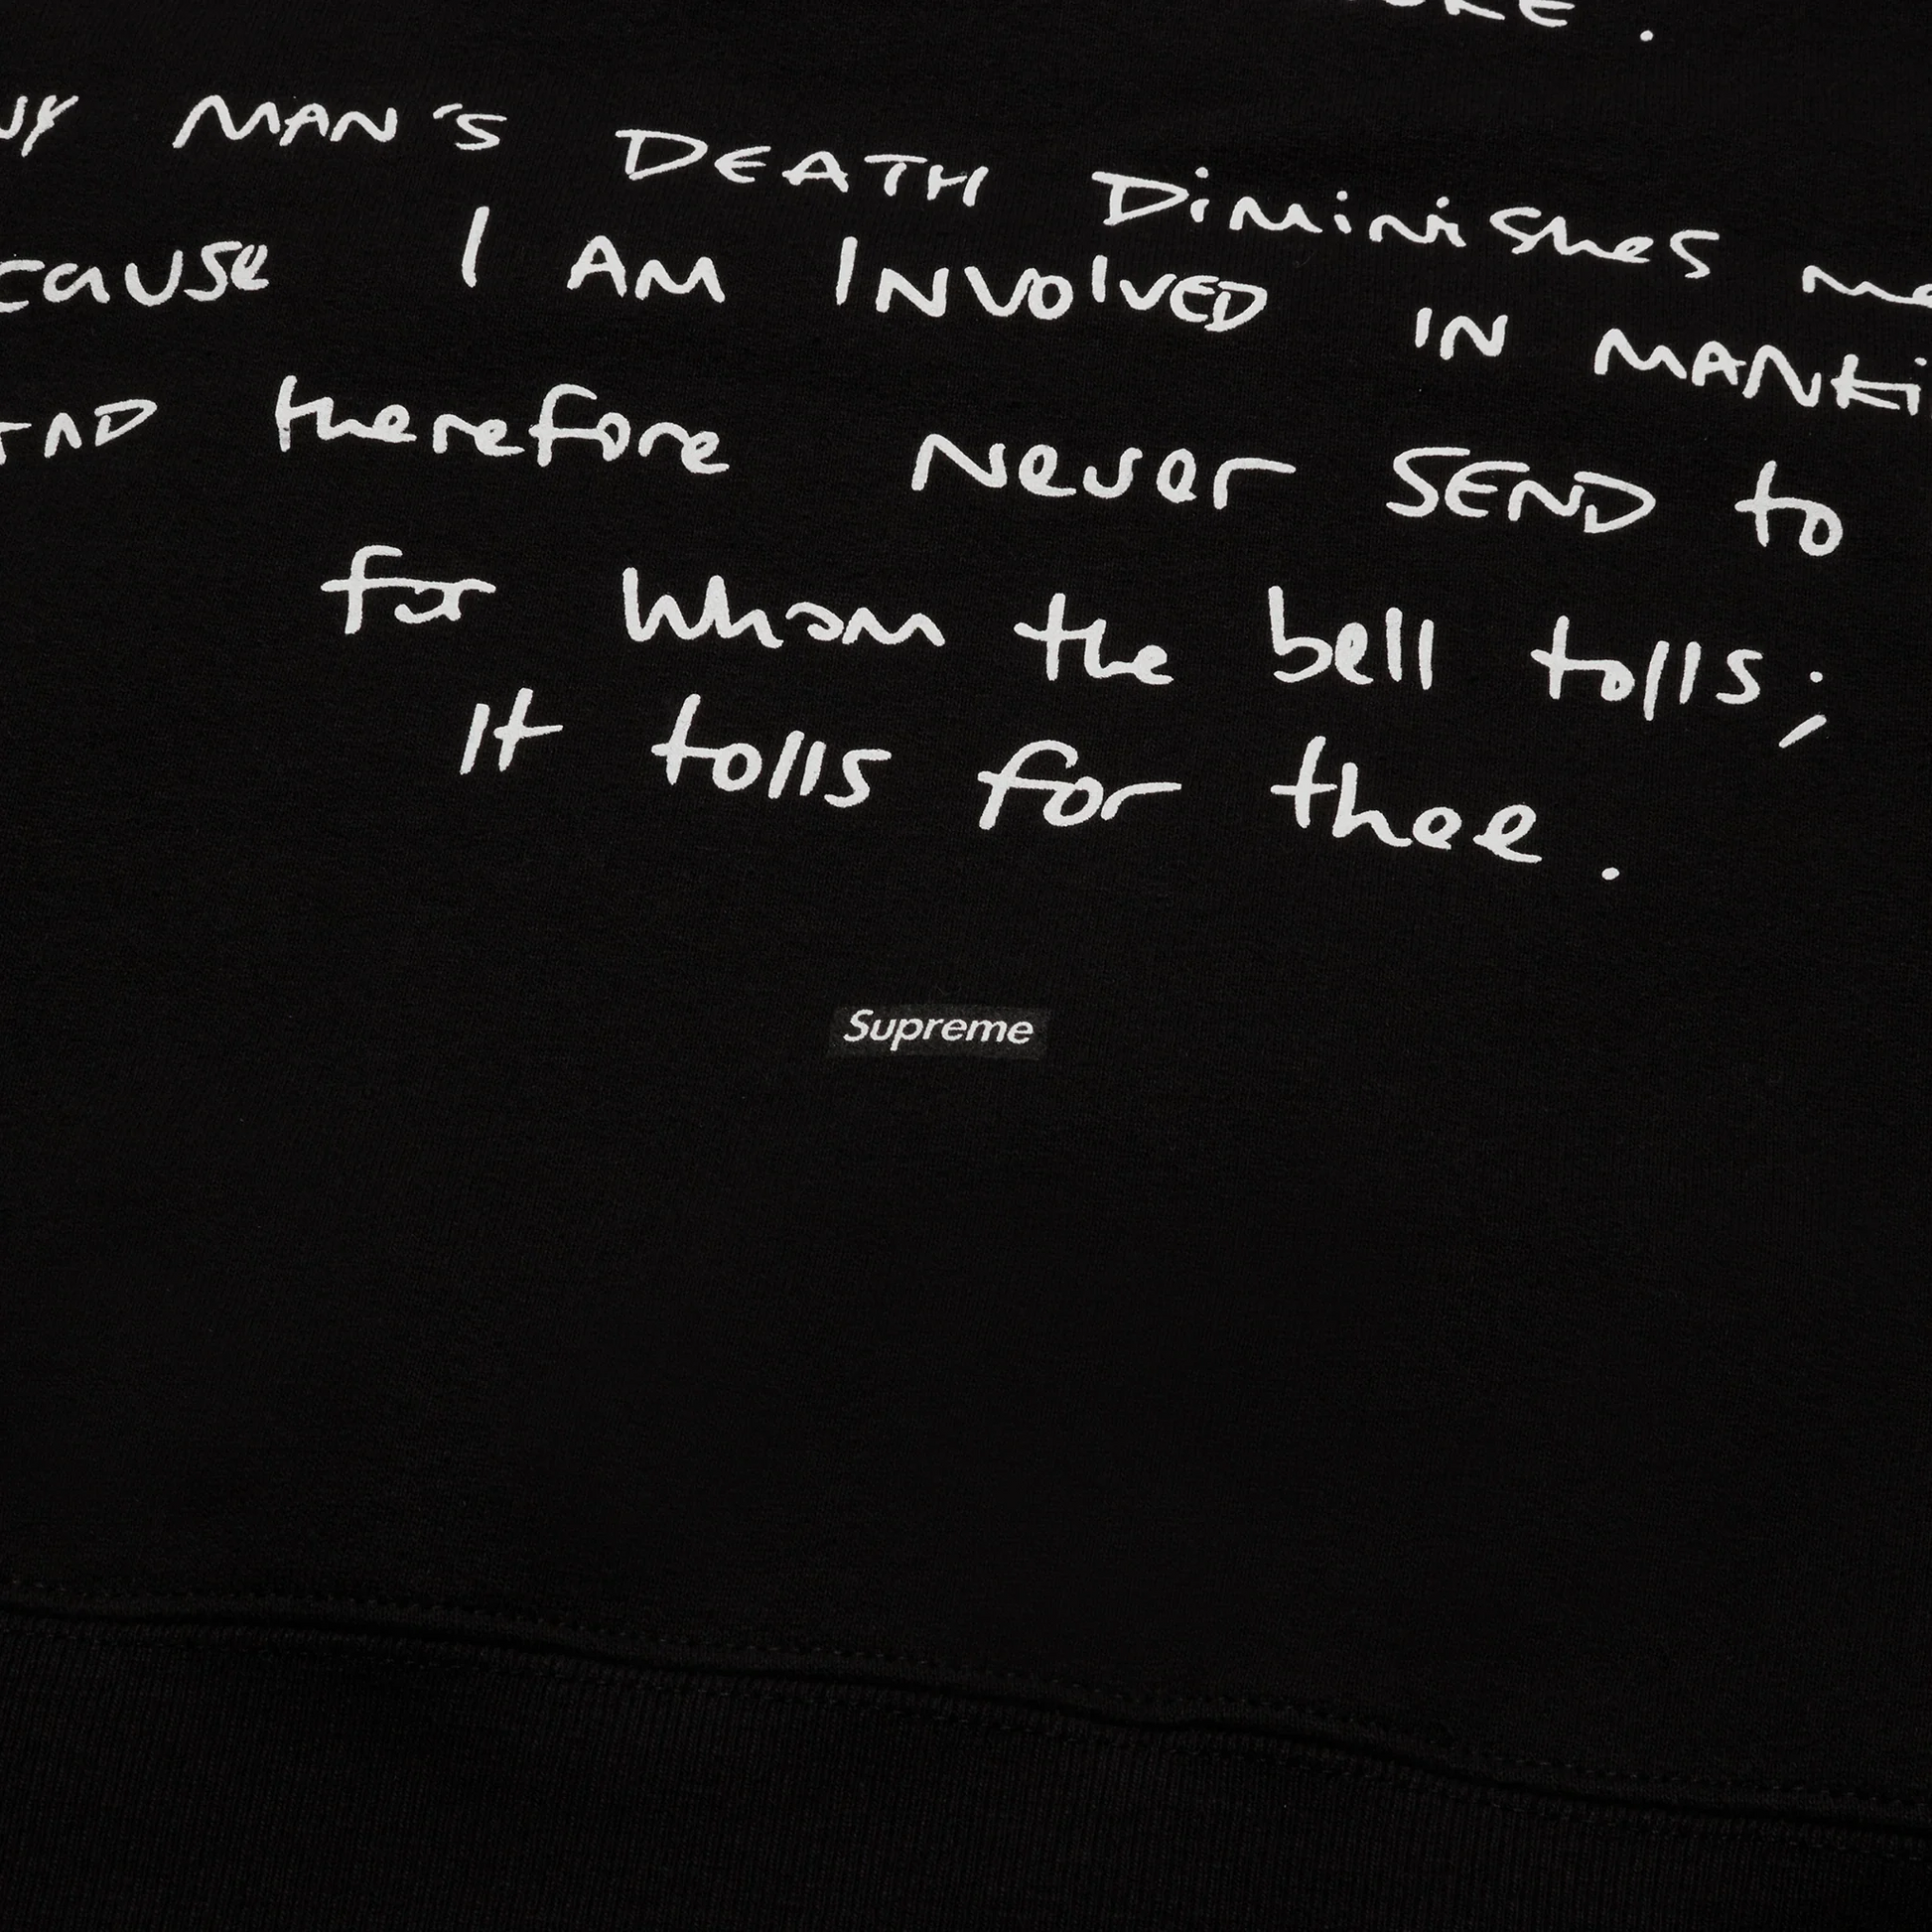 MAN'S DEATH Diminishes me
cause I AM INVOlVED IN MANKi
AND therefore Never SEND to
for Whom the bell tolls;
It tolls for thee.
Supreme